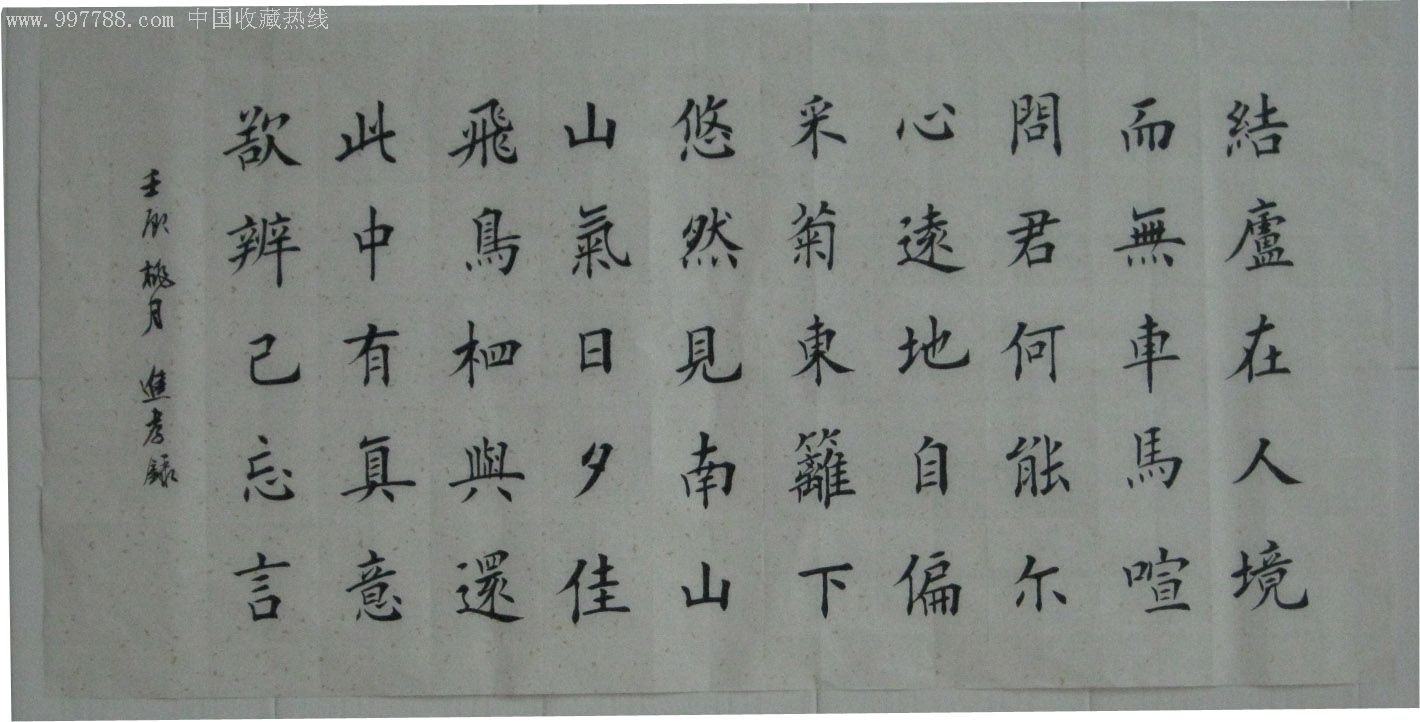 www.997788.com 中国收藏热线
結廬在人境
而無車馬喧
問君何能尔
心遠地自偏
采菊東籬下
悠然見南山
山氣日夕佳
飛鳥相與還
此中有真意
欲辨已忘言
壬辰桃月 進孝錄